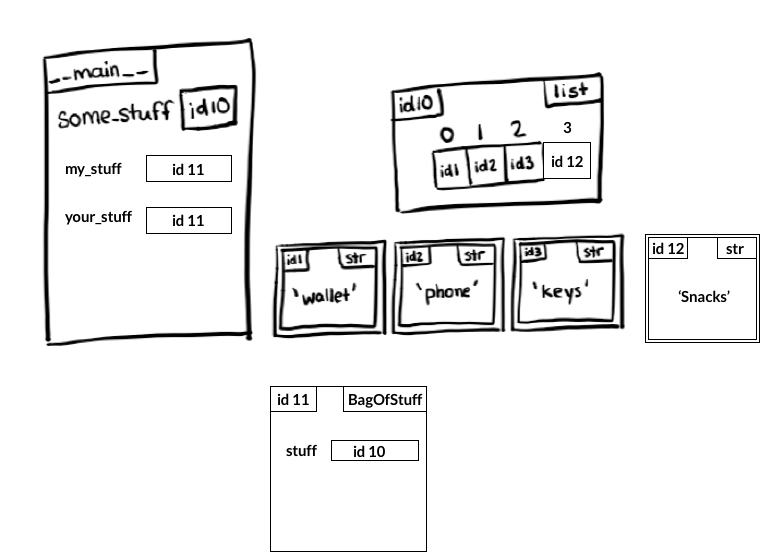 __main__
some_stuff id10
my_stuff id 11
your_stuff id 11
id10 list
0 1 2 3
id1 id2 id3 id 12
id1 str
'wallet'
id2 str
'phone'
id3 str
'keys'
id 12 str
‘Snacks’
id 11 BagOfStuff
stuff id 10